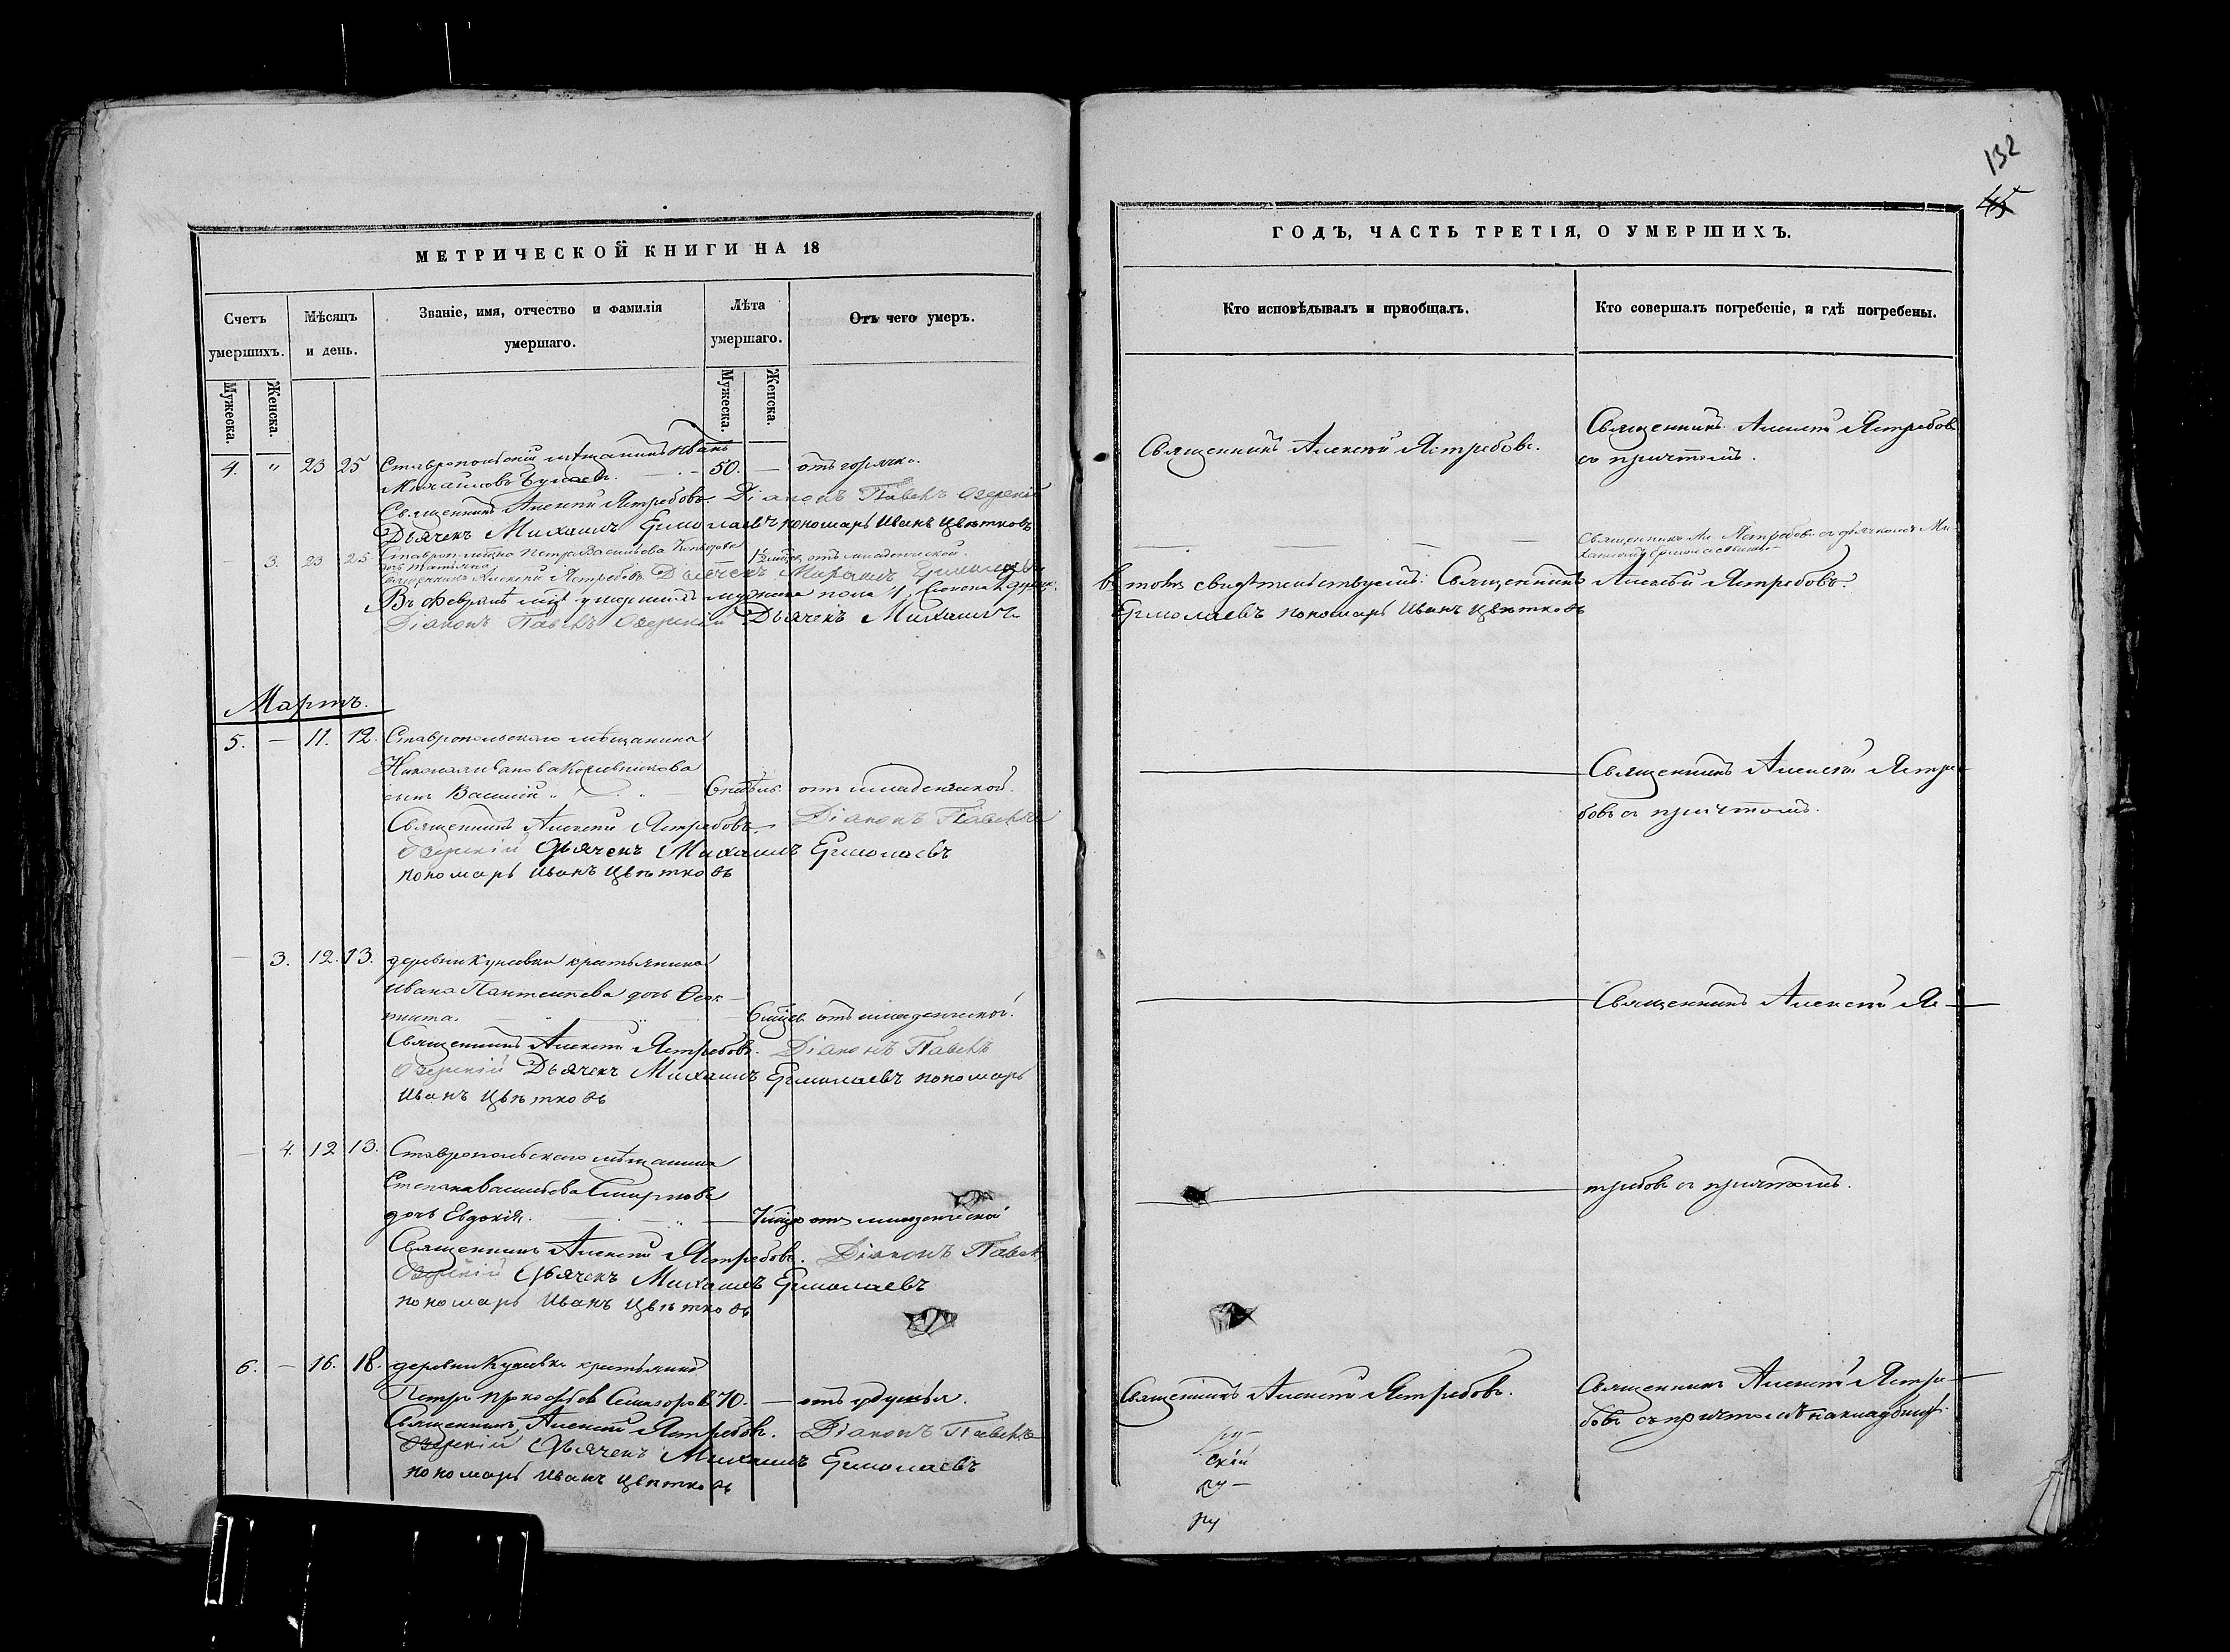 132
45
МЕТРИЧЕСКОЙ КНИГИ НА 18
ГОДЪ, ЧАСТЬ ТРЕТІЯ, О УМЕРШИХЪ.
Счетъ умершихъ.
Мужеска.
Женска.
Мѣсяцъ и день.
Званіе, имя, отчество и фамилія умершаго.
Лѣта умершаго.
Мужеска.
Женска.
Отъ чего умеръ.
Кто исповѣдывалъ и пріобщалъ.
Кто совершалъ погребеніе, и гдѣ погребены.
4. " 23 25 Ставропольскій мѣщанинъ Иванъ
Михайловъ 50. — отъ горячки.
Священникъ Алексѣй Ястребовъ. Діаконъ Павелъ Озерскій
Дьячекъ Михаилъ Ермолаевъ пономарь Иванъ Цвѣтковъ
Священникъ Алексѣй Ястребовъ.
Священникъ Алексѣй Ястребовъ
съ причтомъ.
— 3. 23 25 Петра Васильева
дочь Татьяна 1½ мѣсяц. отъ младенческой.
Священникъ Алексѣй Ястребовъ Дьячекъ Михаилъ Ермолаевъ
Священникъ Ал. Ястребовъ съ дьячкомъ Ми-
хаиломъ Ермолаевымъ.
Въ Февралѣ мцѣ умершихъ мужеска пола 4, женска 2 души.
въ томъ свидѣтельствуемъ: Священникъ Алексѣй Ястребовъ.
Діаконъ Павелъ Озерскій Дьячекъ Михаилъ
Ермолаевъ пономарь Иванъ Цвѣтковъ
Мартъ.
5. — 11. 12. Ставропольскаго мѣщанина
Николая Иванова
сынъ Василій отъ младенческой.
Священникъ Алексѣй Ястребовъ. Діаконъ Павелъ
Озерскій Дьячекъ Михаилъ Ермолаевъ
пономарь Иванъ Цвѣтковъ
Священникъ Алексѣй Ястре-
бовъ съ причтомъ.
— 3. 12. 13. деревни Кунеевки крестьянина
Ивана Пантелѣева дочь Ѳеок-
тиста. 6 мѣсяц. отъ младенческой.
Священникъ Алексѣй Ястребовъ. Діаконъ Павелъ
Озерскій Дьячекъ Михаилъ Ермолаевъ пономарь
Иванъ Цвѣтковъ
Священникъ Алексѣй Яс-
— 4. 12 13. Ставропольскаго мѣщанина
Степана Васильева Смирнова
дочь Евдокія. 7 мѣсяц. отъ младенческой
Священникъ Алексѣй Ястребовъ. Діаконъ Павелъ
Озерскій Дьячекъ Михаилъ Ермолаевъ
пономарь Иванъ Цвѣтковъ
требовъ съ причтомъ.
6. — 16. 18. деревни Кунеевки крестьянинъ
Петръ Прокофьевъ 70. — отъ удушья.
Священникъ Алексѣй Ястребовъ. Діаконъ Павелъ
Озерскій Дьячекъ Михаилъ Ермолаевъ
пономарь Иванъ Цвѣтковъ
Священникъ Алексѣй Ястребовъ.
Священникъ Алексѣй Ястре-
бовъ съ причтомъ на кладбищѣ.
ру-
скій
ру-
ру